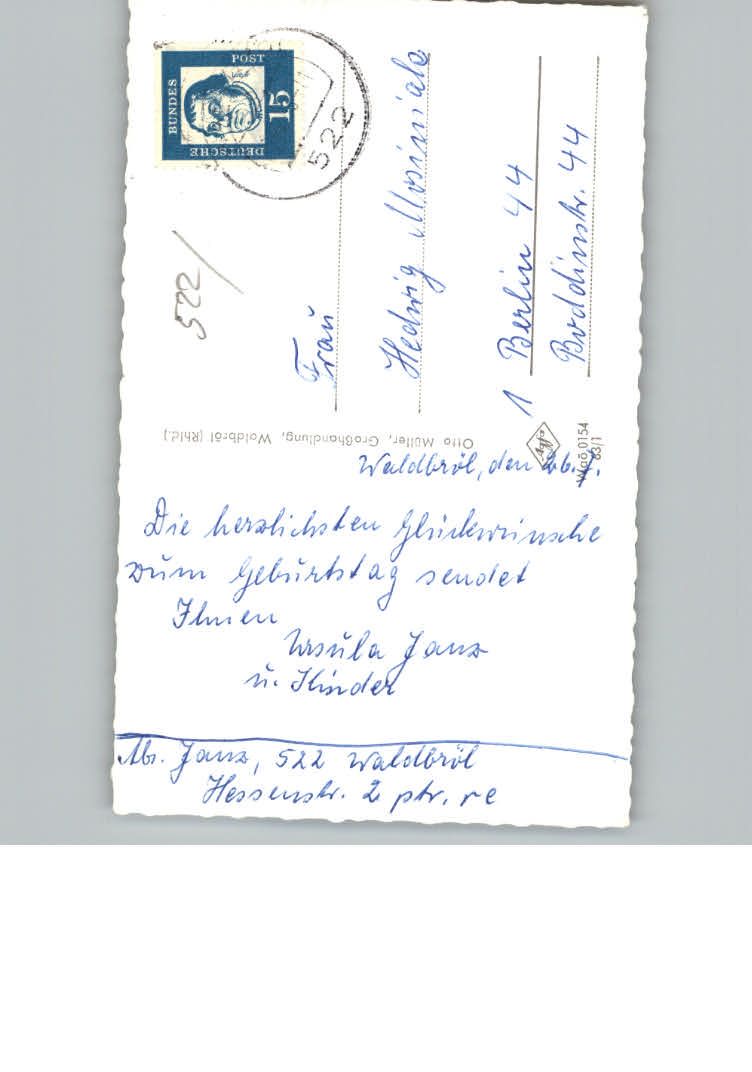 Waldbröl, den 26. 7.
Die herzlichsten Glückwünsche
zum Geburtstag sendet
Ihnen
Ursula Janz
u. Kinder
Abs. Janz, 522 Waldbröl
Hessenstr. 2 ptr. re
Otto Müller, Großhandlung, Waldbröl (Rhld.)
Agfa
Waö 0154
63/1
Frau
Hedwig
1 Berlin 44
Boddinstr. 44
522
DEUTSCHE
BUNDES
POST
15
522